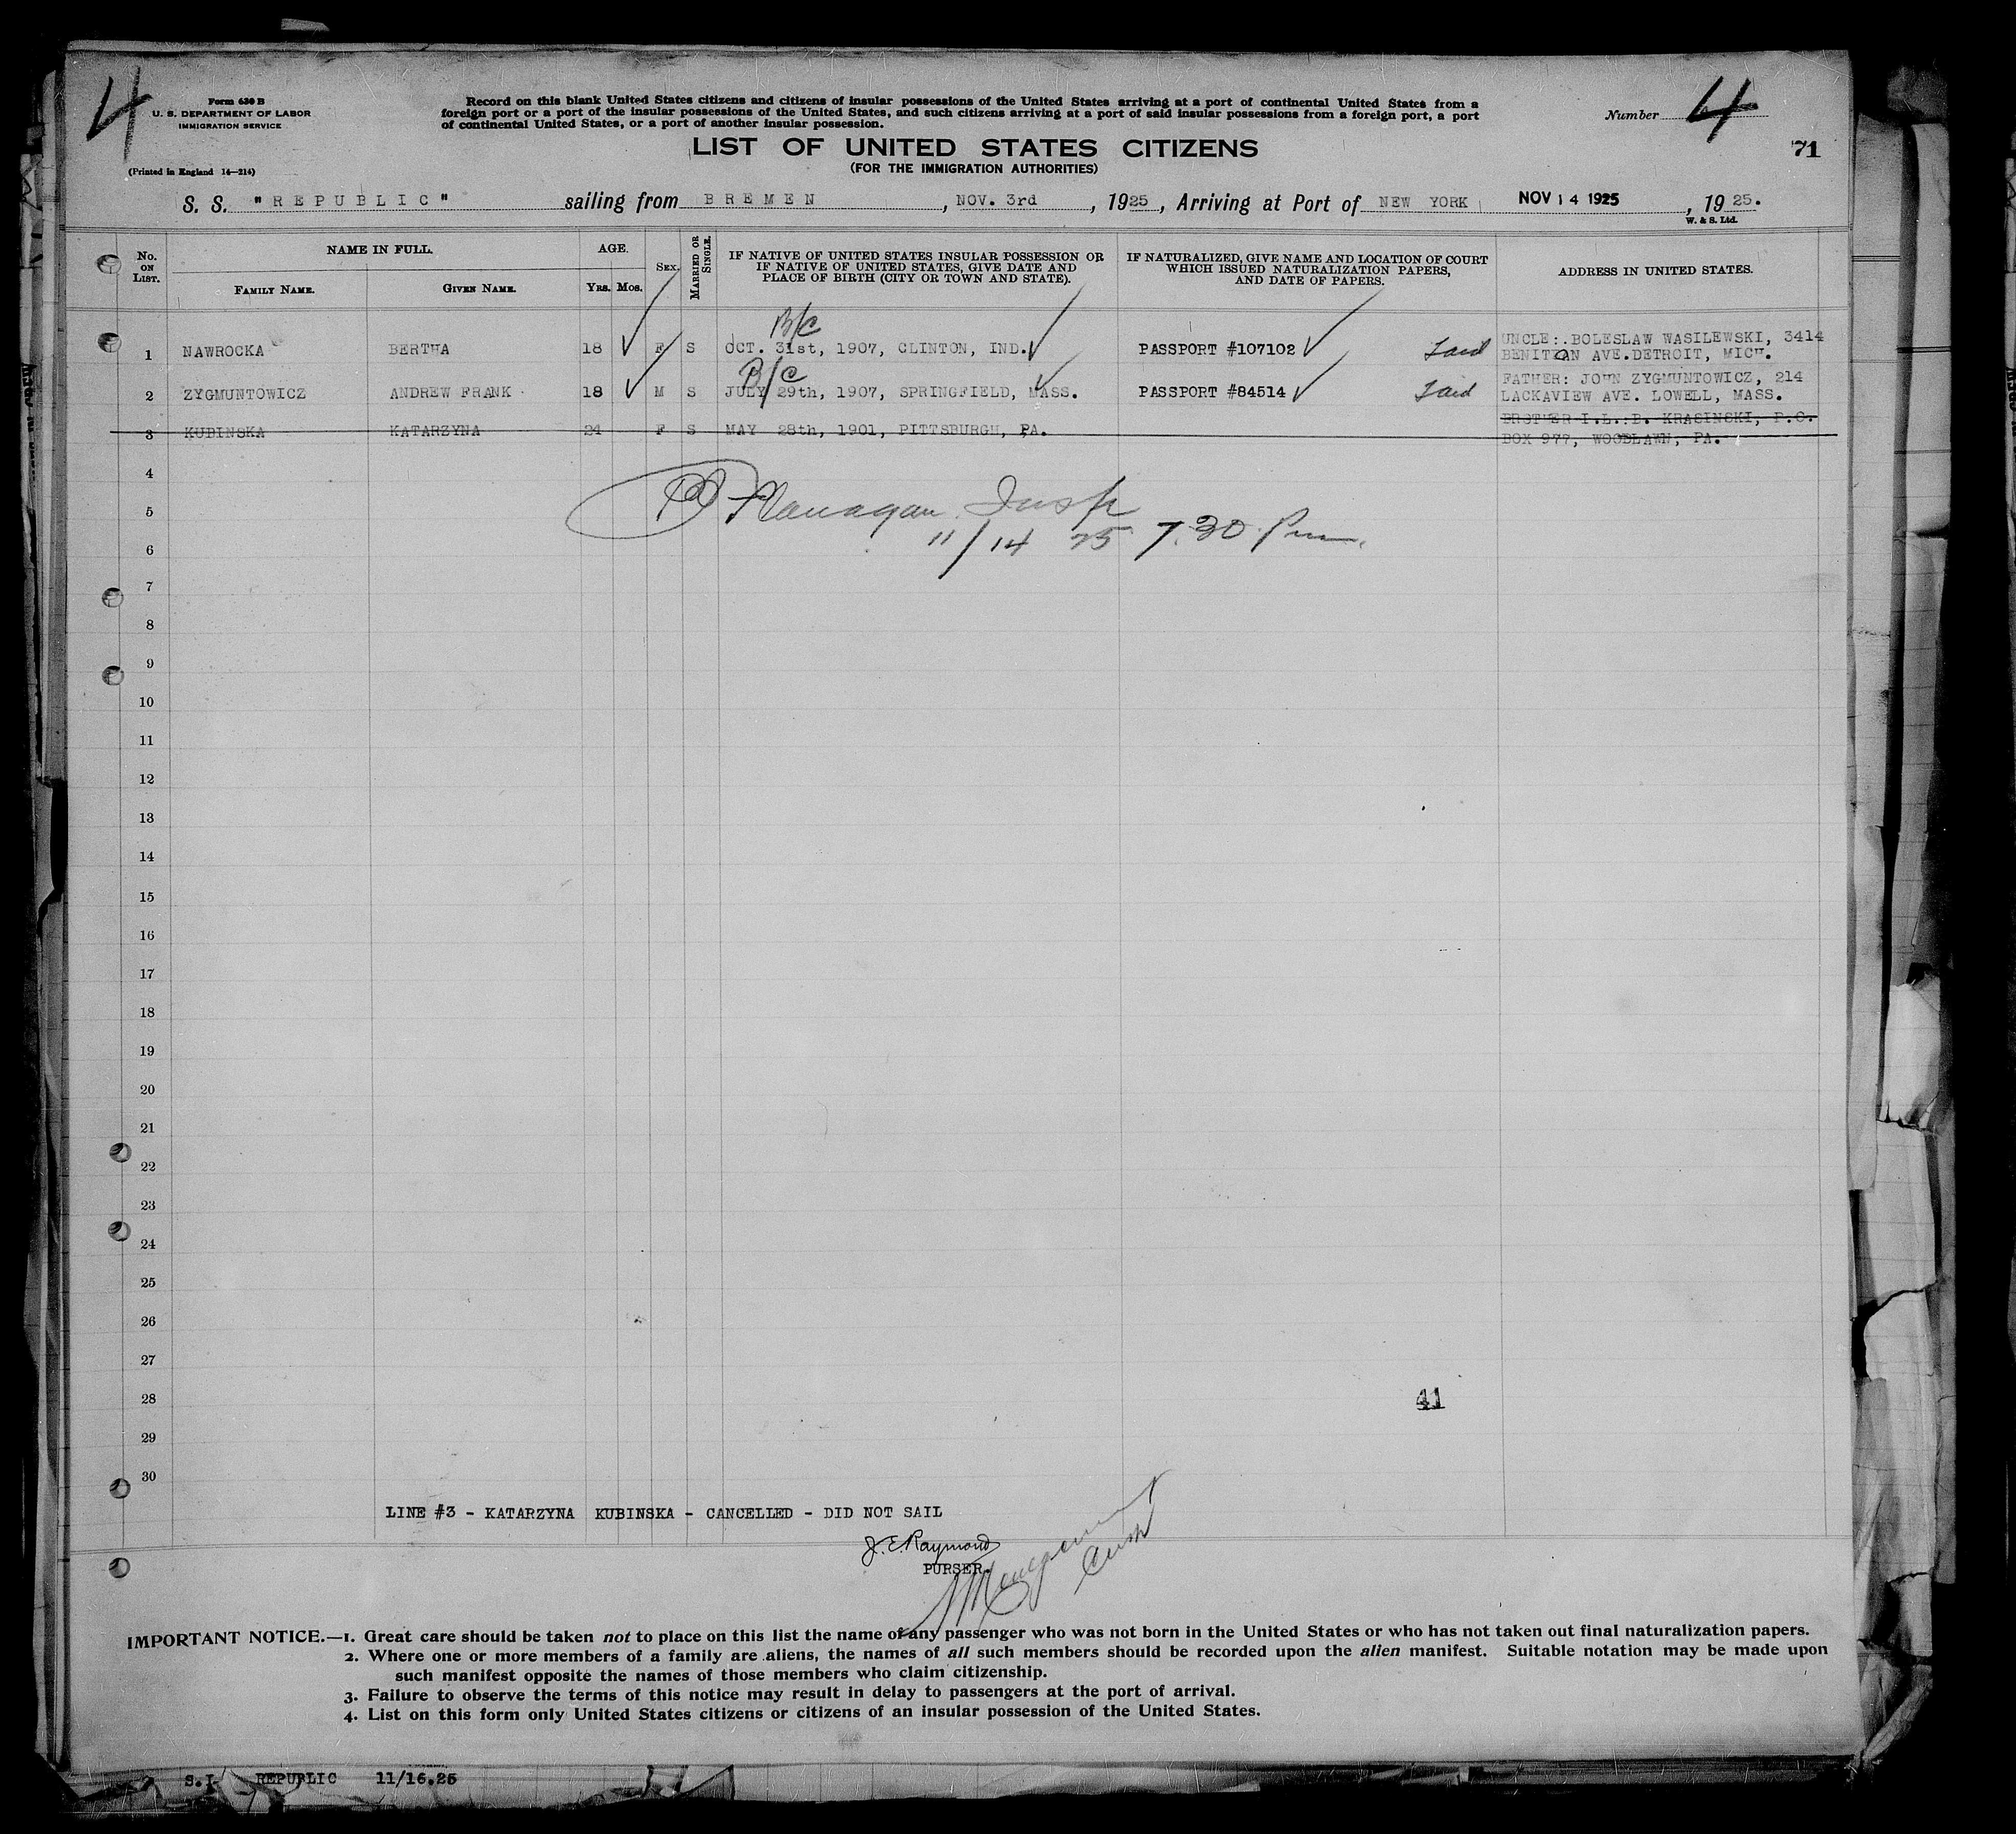 4
Form 630 B
U. S. DEPARTMENT OF LABOR
IMMIGRATION SERVICE
(Printed in England 14—214)
Record on this blank United States citizens and citizens of insular possessions of the United States arriving at a port of continental United States from a
foreign port or a port of the insular possessions of the United States, and such citizens arriving at a port of said insular possessions from a foreign port, a port
of continental United States, or a port of another insular possession.
Number 4
71
LIST OF UNITED STATES CITIZENS
(FOR THE IMMIGRATION AUTHORITIES)
S. S. "REPUBLIC" sailing from BREMEN, NOV. 3rd, 1925, Arriving at Port of NEW YORK NOV 14 1925, 1925.
W. & S. Ltd.
No. ON LIST. NAME IN FULL. FAMILY NAME. GIVEN NAME. AGE. YRS. MOS. SEX. MARRIED OR SINGLE. IF NATIVE OF UNITED STATES INSULAR POSSESSION OR IF NATIVE OF UNITED STATES, GIVE DATE AND PLACE OF BIRTH (CITY OR TOWN AND STATE). IF NATURALIZED, GIVE NAME AND LOCATION OF COURT WHICH ISSUED NATURALIZATION PAPERS, AND DATE OF PAPERS. ADDRESS IN UNITED STATES.
B/C
1 NAWROCKA BERTHA 18 F S OCT. 31st, 1907, CLINTON, IND. PASSPORT #107102 UNCLE: BOLESLAW WASILEWSKI, 3414
BENITEAN AVE. DETROIT, MICH.
B/C
2 ZYGMUNTOWICZ ANDREW FRANK 18 M S JULY 29th, 1907, SPRINGFIELD, MASS. PASSPORT #84514 FATHER: JOHN ZYGMUNTOWICZ, 214
LACKAVIEW AVE. LOWELL, MASS.
3 KUBINSKA KATARZYNA 24 F S MAY 28th, 1901, PITTSBURGH, PA. BROTHER I.L.:B. KRASINSKI, P.O.
BOX 977, WOODLAWN, PA.
4
Flanagan Insp
5
11/14 25 7.30 Pm.
6
7
8
9
10
11
12
13
14
15
16
17
18
19
20
21
22
23
24
25
26
27
28
41
29
30
LINE #3 - KATARZYNA KUBINSKA - CANCELLED - DID NOT SAIL
J. E. Raymond
PURSER.
IMPORTANT NOTICE.—1. Great care should be taken not to place on this list the name of any passenger who was not born in the United States or who has not taken out final naturalization papers.
2. Where one or more members of a family are aliens, the names of all such members should be recorded upon the alien manifest. Suitable notation may be made upon
such manifest opposite the names of those members who claim citizenship.
3. Failure to observe the terms of this notice may result in delay to passengers at the port of arrival.
4. List on this form only United States citizens or citizens of an insular possession of the United States.
S.I. REPUBLIC 11/16.25